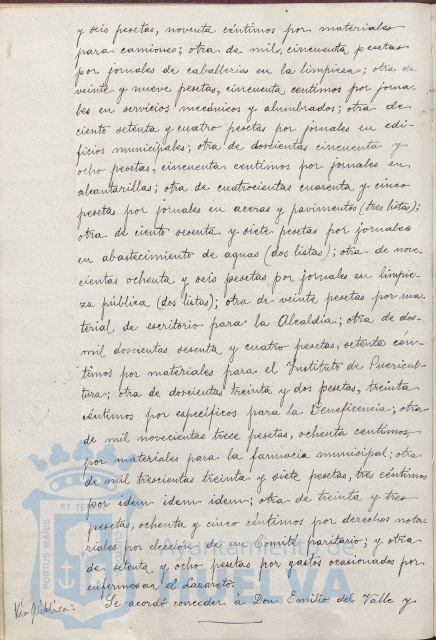 y seis pesetas, noventa céntimos por materiales
para camiones; otra de mil, cincuenta pesetas
por jornales de caballerias en la limpieza; otra de
veinte y nueve pesetas, cincuenta centimos por jorna-
les en servicios mecánicos y alumbrados; otra de
ciento setenta y cuatro pesetas por jornales en edi-
ficios municipales; otra de doscientas cincuenta y
ocho pesetas, cincuenta centimos por jornales en
alcantarillas; otra de cuatrocientas cuarenta y cinco
pesetas por jornales en aceras y pavimentos (tres listas);
otra de ciento sesenta y siete pesetas por jornales
en abastecimiento de aguas (dos listas); otra de nove-
cientas ochenta y seis pesetas por jornales en limpie-
za pública (dos listas); otra de veinte pesetas por ma-
terial de escritorio para la Alcaldía; otra de dos-
mil doscientas sesenta y cuatro pesetas, setenta cen-
timos por materiales para el Instituto de Puericul-
tura; otra de doscientas treinta y dos pesetas, treinta
céntimos por específicos para la Beneficencia; otra
de mil novecientas trece pesetas, ochenta centimos
por materiales para la farmacia municipal; otra
de mil trescientas treinta y siete pesetas, tres céntimos
por idem idem idem; otra de treinta y tres
pesetas, ochenta y cinco céntimos por derechos nota-
riales por elección de un Comité paritario; y otra
de setenta y ocho pesetas por gastos ocasionados por
enfermos en el Lazareto.
Vía pública:
Se acordó conceder a Don Emilio del Valle y
PORTUS MARIS
ET TERRAE
Ayuntamiento de
HUELVA